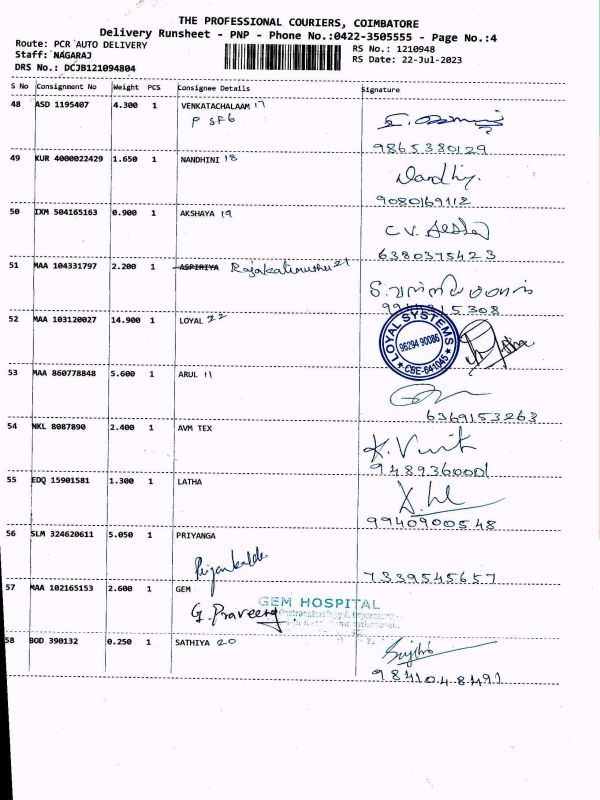 THE PROFESSIONAL COURIERS, COIMBATORE
Delivery Runsheet - PNP - Phone No.:0422-3505555 - Page No.:4
Route: PCR AUTO DELIVERY
Staff: NAGARAJ
DRS No.: DCJB121094804
RS No.: 1210948
RS Date: 22-Jul-2023
S No Consignment No Weight PCS Consignee Details Signature
48 ASD 1195407 4.300 1 VENKATACHALAAM 17
P SF6
9865380129
49 KUR 4000022429 1.650 1 NANDHINI 18
Nandhiy.
9080169112
50 IXM 504165163 0.900 1 AKSHAYA 19
C.V.
6380375423
51 MAA 104331797 2.200 1 ASPIRIYA 21
15308
52 MAA 103120027 14.900 1 LOYAL 22
LOYAL SYSTEMS
96294 90086
CBE-641045
53 MAA 860778848 5.600 1 ARUL 11
6369153263
54 NKL 8087890 2.400 1 AVM TEX
K. Vinit
9489360001
55 EDQ 15901581 1.300 1 LATHA
9940900548
56 SLM 324620611 5.050 1 PRIYANGA
7339545657
57 MAA 102165153 2.600 1 GEM
G. Praveena
GEM HOSPITAL
58 BOD 390132 0.250 1 SATHIYA 20
9841048491